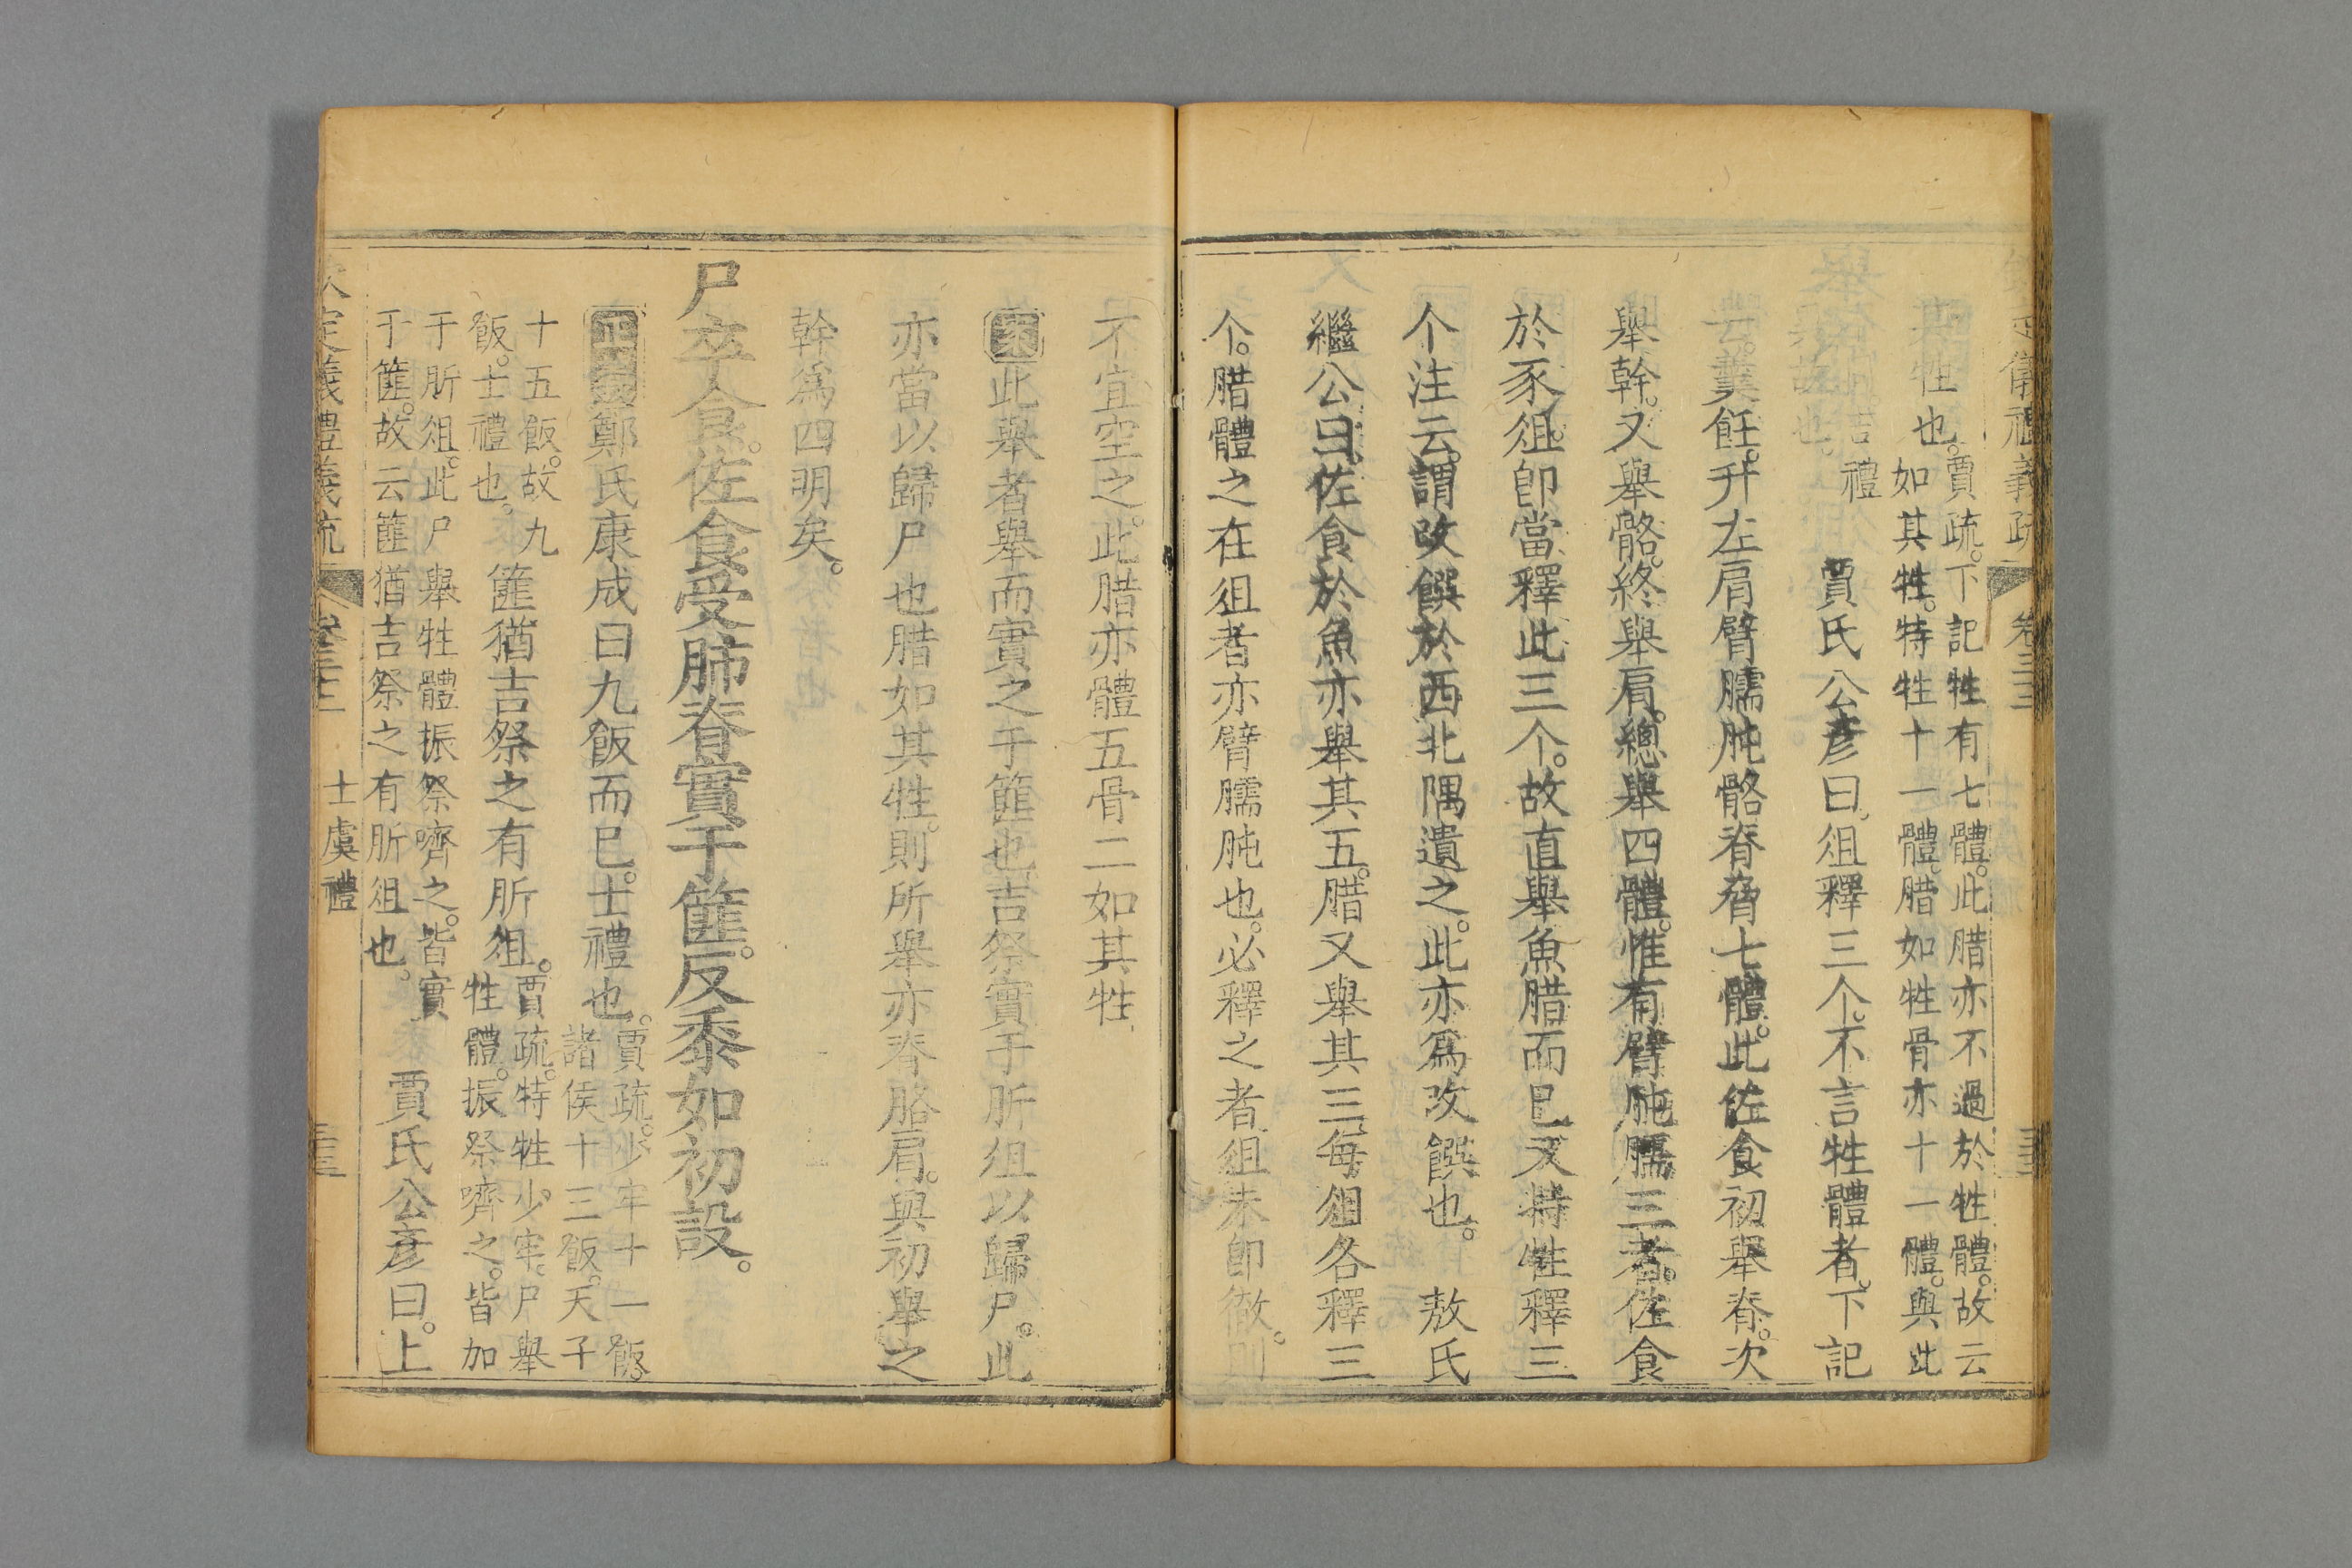 其牲也。賈疏。下記牲有七體。此腊亦不過於牲體。故云
如其牲。特牲十一體。腊如牲骨亦十一體。與此
吉禮
賈氏公彥曰。俎釋三个。不言牲體者。下記
云。羹飪。升左肩臂臑肫骼脊脅七體。此佐食初舉脊。次
舉幹。又舉骼。終舉肩。總舉四體。惟有臂肫臑三者。佐食
於豕俎。卽當釋此三个。故直舉魚腊而已。又特牲釋三
个注云。謂改饌於西北隅遺之。此亦爲改饌也。 敖氏
繼公曰。佐食於魚亦舉其五。腊又舉其三。每俎各釋三
个。腊體之在俎者亦臂臑肫也。必釋之者。俎未卽徹。則
卷三十三
不宜空之。此腊亦體五骨二如其牲
案此舉者舉而實之于篚也。吉祭實于肵俎以歸尸。此
亦當以歸尸也腊如其牲。則所舉亦脊骼肩。與初舉之
幹爲四明矣。
尸卒食。佐食受肺脊實于篚。反黍如初設。
正義鄭氏康成曰九飯而已。士禮也。賈疏。少牢十一飯。
諸侯十三飯。天子
十五飯。故九
飯。士禮也。
篚猶吉祭之有肵俎。賈疏。特牲少牢。尸舉
牲體。振祭嚌之。皆加
于肵俎。此尸舉牲體振祭嚌之。皆實
于篚。故云篚猶吉祭之有肵俎也。
賈氏公彥曰。上
欽定義禮義疏
卷三十三
士虞禮